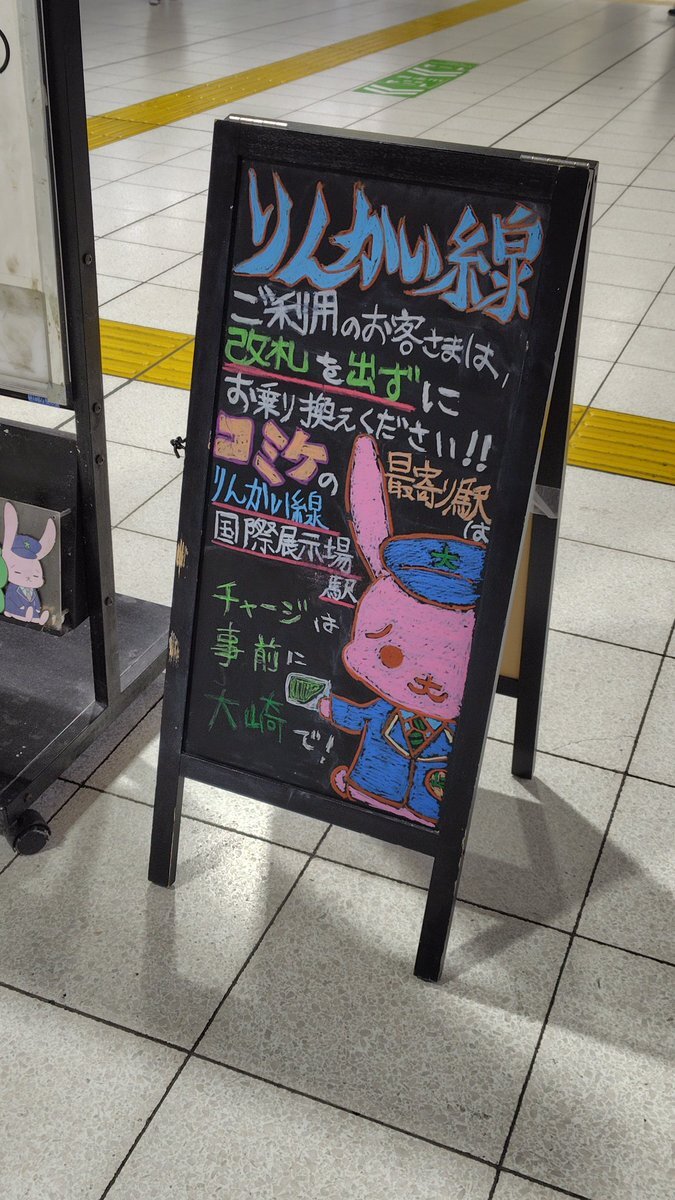 りんかい線
ご利用のお客さまは,
改札を出ずに
お乗り換えください!!
コミケの
最寄り駅は
りんかい線
国際展示場
駅
チャージは
事前に
大崎で!
大